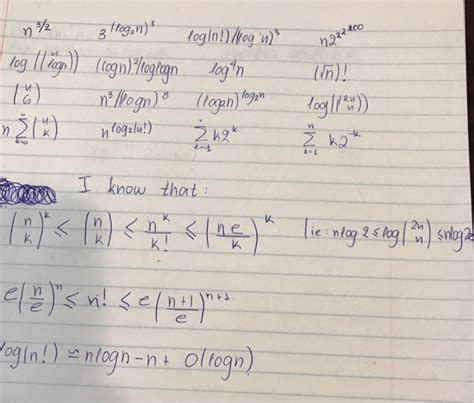 n^{3/2} 3^{(log₂n)^3} log(n!)/(log n)^3 n2^{2^{2^{100}}}
log((n logn)) (logn)^2/loglogn log^4n (√n)!
(n 6) n^3/(logn)^8 (log₂n)^{log₂n} log((2n n))
n∑_{k=0}^{n}(n k) n^{log₂(n!)} ∑_{k=1} k2^k ∑_{k=1}^{n} k2^{-k}
I know that:
(n/k)^k ≤ (n k) ≤ n^k/k! ≤ (ne/k)^k (ie: nlog2 ≤ log(2n n) ≤ nlog2e
e(n/e)^n ≤ n! ≤ e((n+1)/e)^{n+1}
log(n!) ≃ nlogn-n + O(logn)